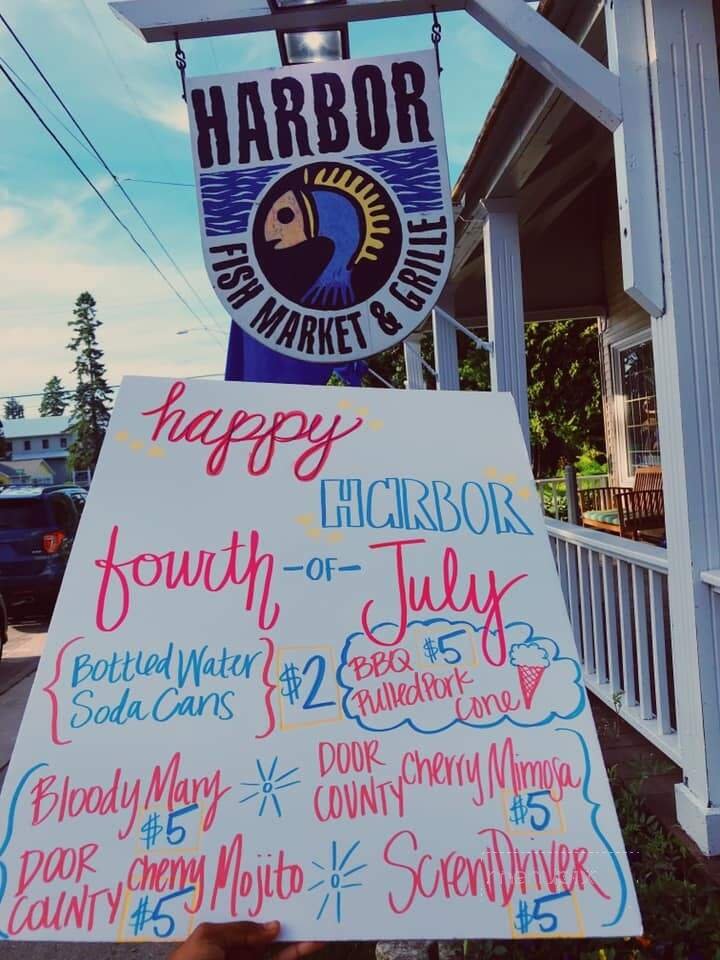 HARBOR
FISH MARKET & GRILLE
happy
HARBOR
fourth -OF- July
Bottled Water
Soda Cans
$2
BBQ $5
Pulled Pork
Cone
Bloody Mary
$5
DOOR
COUNTY
Cherry Mimosa
$5
DOOR
COUNTY
Cherry Mojito
$5
ScrewDRIVER
$5